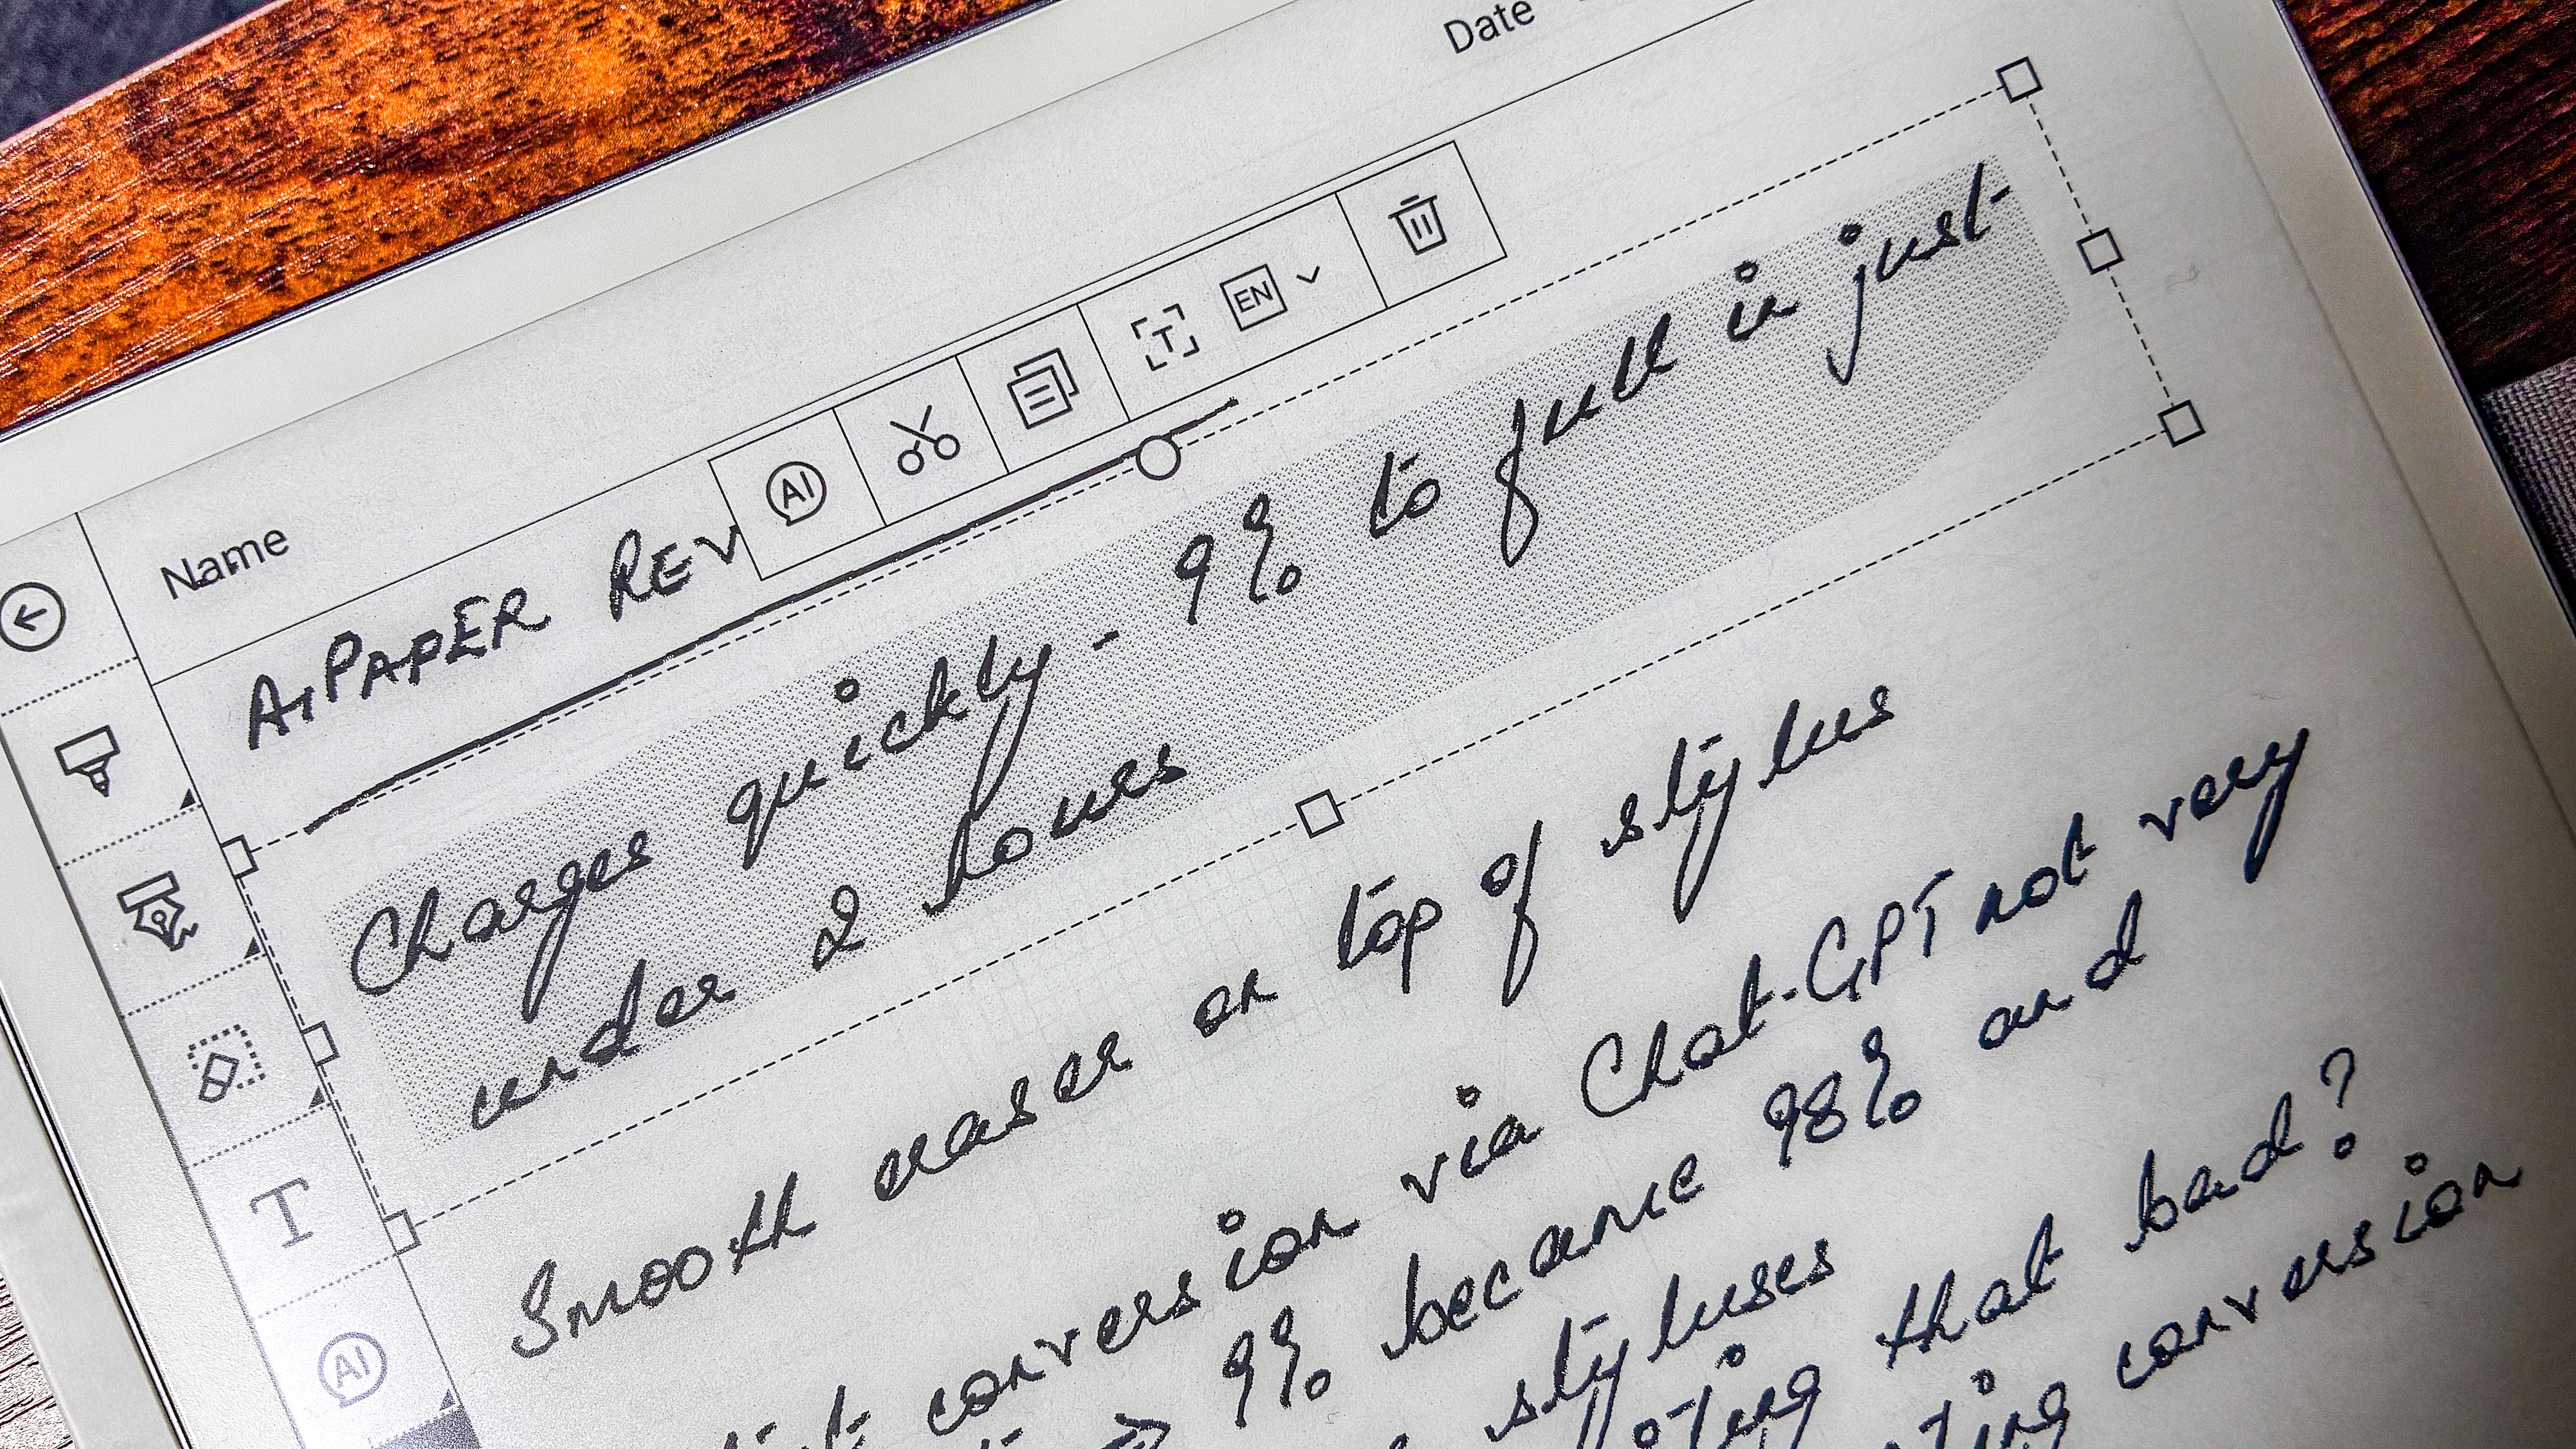 Date
Name
AI
EN
AiPAPER REV
Charges quickly - 9% to full in just
under 2 hours
Smooth eraser on top of stylus
conversion via Chat-GPT not very
9% became 98% and
styluses
that bad?
conversion
T
AI